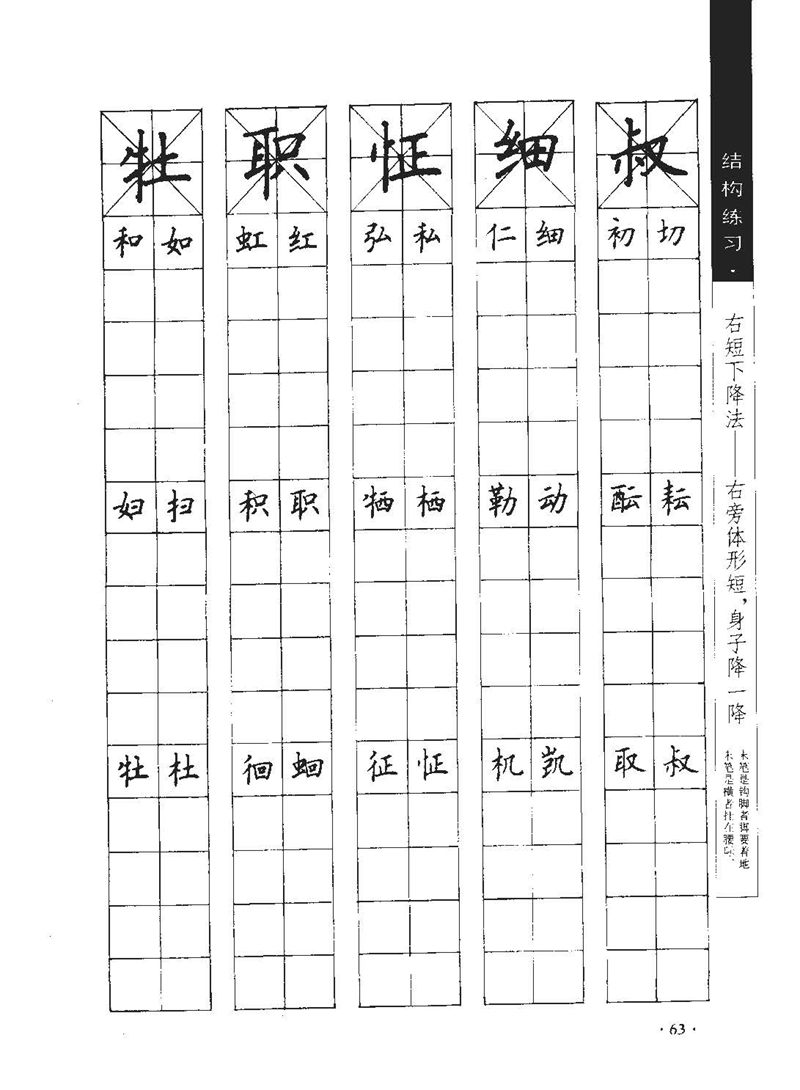 结构练习·
右短下降法——右旁体形短，身子降一降
末笔是钩脚者 要着地
末笔是横者挂在腰际、
牡 职 怔 细 叔
和 如 虹 红 弘 私 仁 细 初 切
妇 扫 积 职 牺 栖 勒 动 酝 耘
牡 杜 徊 蛔 征 怔 机 凯 取 叔
·63·